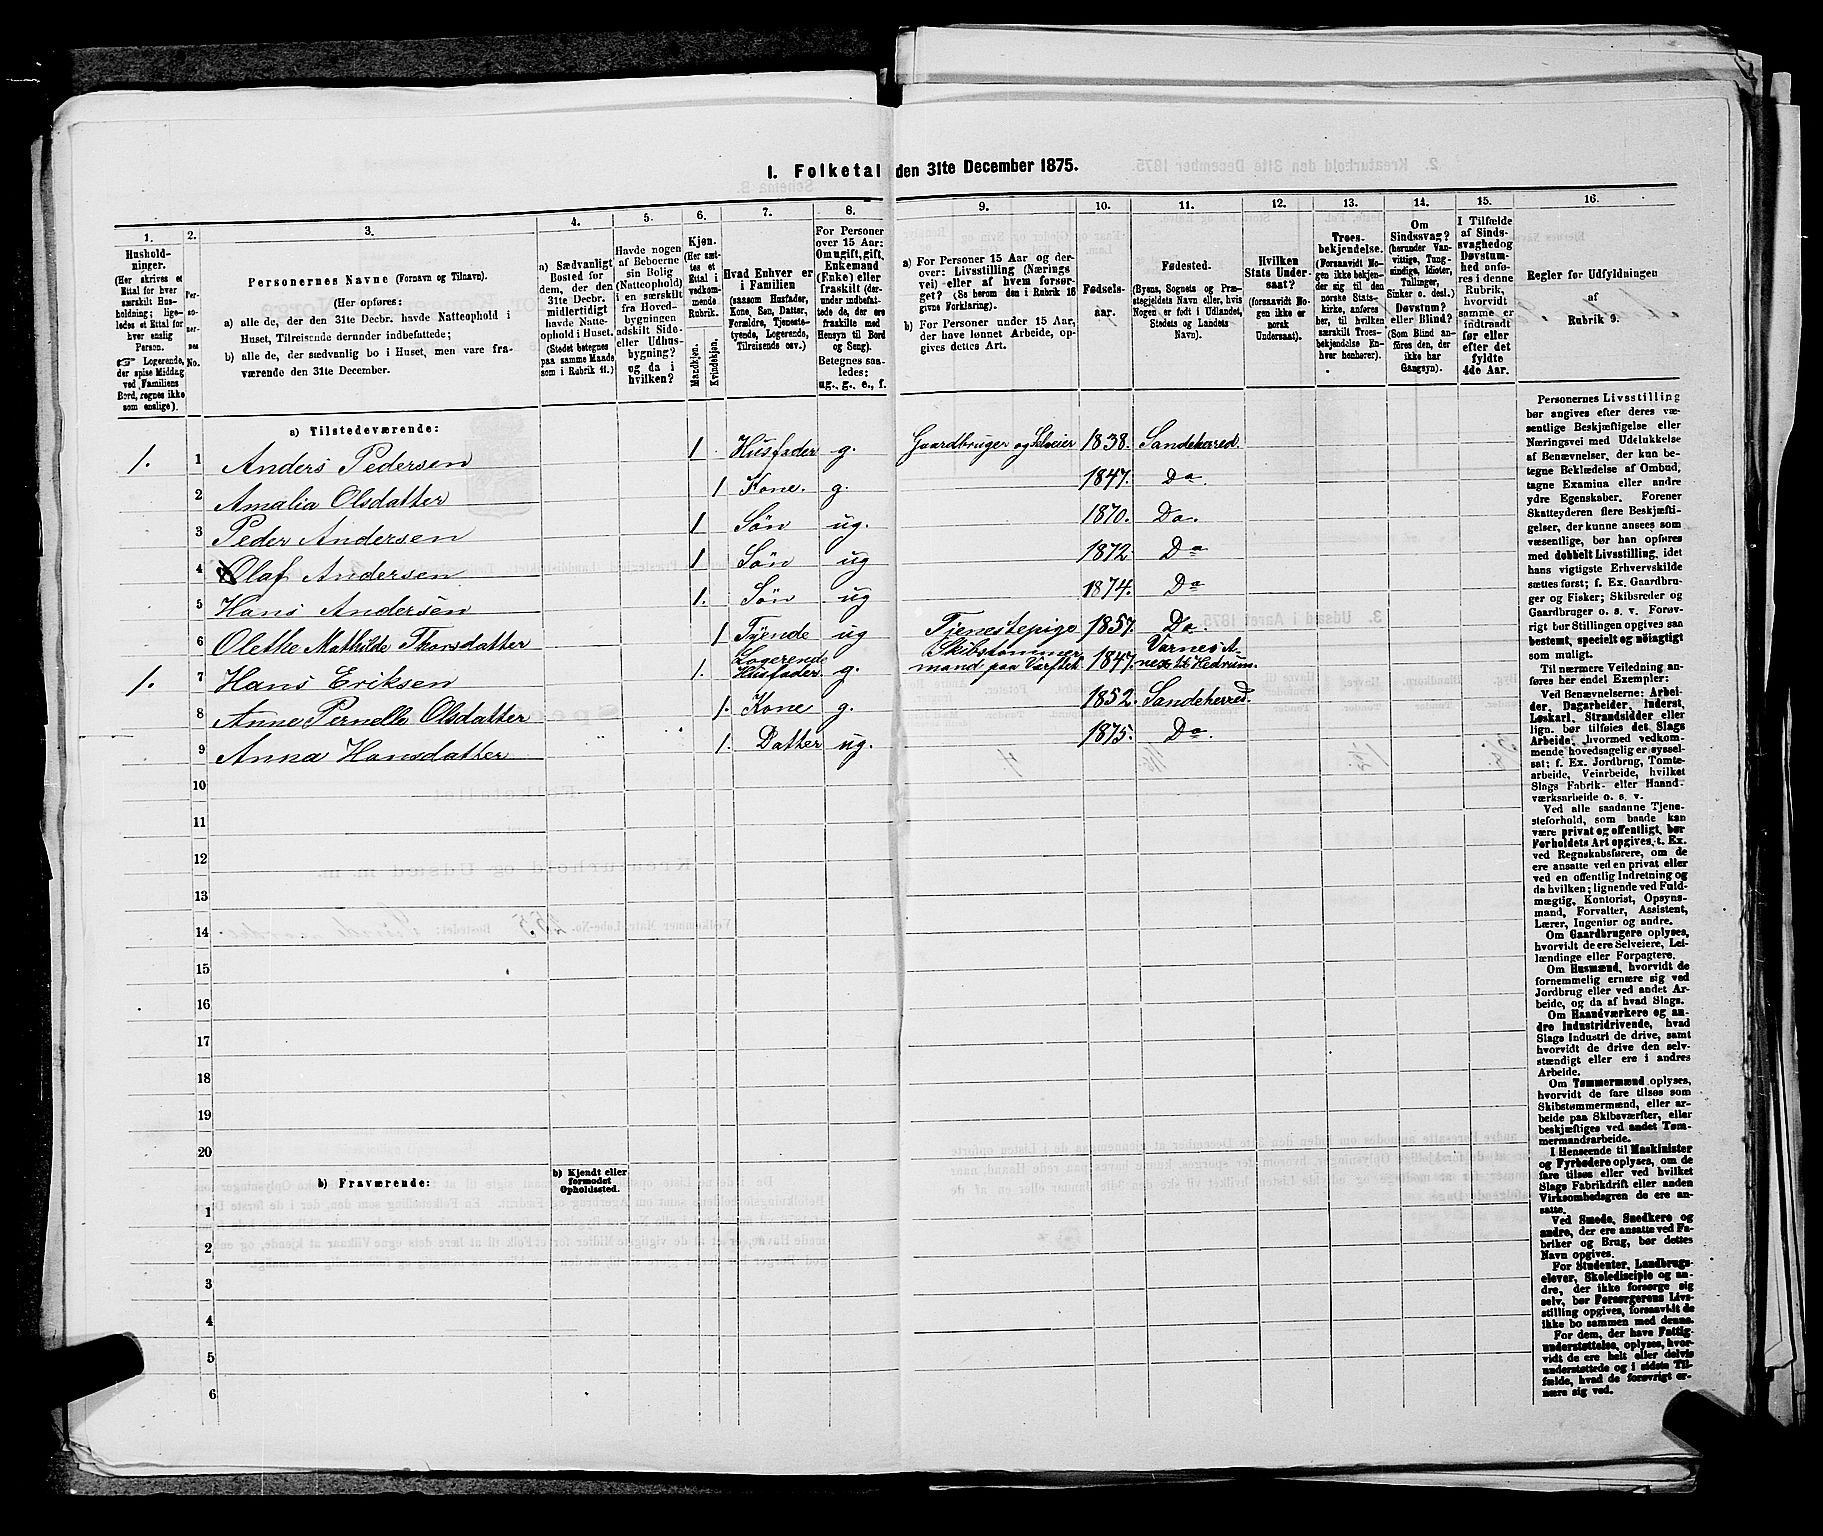 1. Folketal den 31te December 1875.
1.
Hushold-
ninger.
(Her skrives et
Ettal for hver
særskilt Hus-
holdning; lige-
ledes et Ettal for
hver enslig
Person.
☞ Logerende,
der spise Middag
ved Familiens
Bord, regnes ikke
som enslige).
2.
Per-
so-
ner-
nes
No.
3.
Personernes Navne (Fornavn og Tilnavn).
(Her opføres:
a) alle de, der den 31te Decbr. havde Natteophold i
Huset, Tilreisende derunder indbefattede;
b) alle de, der sædvanlig bo i Huset, men vare fra-
værende den 31te December.
4.
a) Sædvanligt
Bosted for
dem, der den
31te Decbr.
midlertidigt
havde Natte-
ophold i Huset.
(Stedet betegnes
paa samme Maade
som i Rubrik 11.)
5.
Havde nogen
af Beboerne
sin Bolig
(Natteophold)
i en særskilt
fra Hoved-
bygningen
adskilt Side-
eller Udhus-
bygning?
og da i
hvilken?
6.
Kjøn.
(Her sæt-
tes et
Ettal i
vedkom-
mende
Rubrik.
Mandkjøn.
Kvindekjøn.
7.
Hvad Enhver er
i Familien
(saasom Husfader,
Kone, Søn, Datter,
Forældre, Tjeneste-
tyende, Logerende,
Tilreisende osv.)
8.
For Personer
over 15 Aar:
Om ugift, gift,
Enkemand
(Enke) eller
fraskilt (der-
under indbefat-
tede de, der ere
fraskilte med
Hensyn til Bord
og Seng).
Betegnes saa-
ledes:
ug., g., e., f.
9.
a) For Personer 15 Aar og der-
over: Livsstilling (Nærings
vei) eller af hvem forsør-
get? (Se herom den i Rubrik 16
givne Forklaring).
b) For Personer under 15 Aar,
der have lønnet Arbeide, op-
gives dettes Art.
10.
Fødsels-
aar.
11.
Fødested.
(Byens, Sognets og Præ-
stegjeldets Navn eller, hvis
Nogen er født i Udlandet,
Stedets og Landets
Navn).
12.
Hvilken
Stats Under-
saat?
(forsaavidt No-
gen ikke er
norsk
Undersaat).
13.
Troes-
bekjendelse.
(Forsaavidt No-
gen ikke bekjen-
der sig til den
norske Stats-
kirke, anføres
her, til hvilken
særskilt Troes-
bekjendelse En-
hver henhører).
14.
Om
Sindssvag?
(herunder Van-
vittige, Tung-
sindige, Idioter,
Tullinger,
Sinker o. desl.)
Døvstum?
eller Blind?
(Som Blind an-
føres den, der
ikke har
Gangsyn).
15.
I Tilfælde
af Sinds-
svaghed og
Døvstum-
hed anfø-
res i denne
Rubrik,
hvorvidt
samme er
indtraadt
før eller
efter det
fyldte
4de Aar.
16.
Regler før Udfyldningen
af
Rubrik 9.
a) Tilstedeværende:
1. 1 Anders Pedersen 1 Husfader g. Gaardbruger og Selveier 1838. Sandeherred.
2 Amalia Olsdatter 1 Kone. g. 1847. Do.
3 Peder Andersen 1 Søn ug. 1870. Do.
4 Olaf Andersen 1 Søn ug 1872. Do
5 Hans Andersen 1. Søn ug 1874. Do
6 Olethe Mathilde Thorsdatter 1 Tyende ug Tjenestepige 1857. Do.
Logerende Skibstømmer Varnes A-
1. 7 Hans Eriksen 1. Husfader g. mand paa Værftet 1847. nex til Hedrum.
8 Anne Pernelle Olsdatter 1. Kone g. 1852. Sandeherred.
9 Anna Hansdatter 1. Datter ug. 1875. Do.
10
11
12
13
14
15
16
17
18
19
20
b) Fraværende:
b) Kjendt eller
formodet
Opholdssted.
1
2
3
4
5
6
Personernes Livsstilling
bør angives efter deres væ-
sentlige Beskjæftigelse eller
Næringsvei med Udelukkelse
af Benævnelser, der kun be-
tegne Beklædelse af Ombud,
tagne Examina eller andre
ydre Egenskaber. Forener
Skatteyderen flere Beskjæfti-
gelser, der kunne ansees som
væsentlige, bør han opføres
med dobbelt Livsstilling, idet
hans vigtigste Erhvervskilde
sættes først; f. Ex. Gaardbru-
ger og Fisker; Skibsreder og
Gaardbruger o. s. v. Forøv-
rigt bør Stillingen opgives saa
bestemt, specielt og nøiagtigt
som muligt.
Til nærmere Veiledning an-
føres her endel Exempler:
Ved Benævnelserne: Arbei-
der, Dagarbeider, Inderst,
Løskarl, Strandsidder eller
lign. bør tilføies det Slags
Arbeide, hvormed vedkom-
mende hovedsagelig er syssel-
sat; f. Ex. Jordbrug, Tomte-
arbeide, Veiarbeide, hvilket
Slags Fabrik- eller Haand-
værksarbeide o. s. v.
Ved alle saadanne Tjene-
steforhold, som baade kan
være privat og offentligt, bør
Forholdets Art opgives, t. Ex.
ved Regnskabsførere, om de
ere ansatte ved en privat eller
ved en offentlig Indretning og
da hvilken; lignende ved Fuld-
mægtig, Kontorist, Opsyns-
mand, Forvalter, Assistent,
Lærer, Ingeniør og andre.
Om Gaardbrugere oplyses,
hvorvidt de ere Selveiere, Lei-
lændinge eller Forpagtere.
Om Husmænd, hvorvidt de
fornemmelig ernære sig ved
Jordbrug eller ved andet Ar-
beide, og da af hvad Slags.
Om Haandværkere og an-
dre Industridrivende, hvad
Slags Industri de drive, samt
hvorvidt de drive den selv-
stændigt eller ere i andres
Arbeide.
Om Tømmermænd oplyses,
hvorvidt de fare tilsøs som
Skibstømmermænd, eller ar-
beide paa Skibsværfter, eller
beskjæftiges ved andet Tøm-
mermandsarbeide.
I Henseende til Maskinister
og Fyrbødere oplyses, om de
fare tilsøs eller ved hvilket
Slags Fabrikdrift eller anden
Virksomhedsgren de ere an-
satte.
Ved Smede, Snedkere og
andre, der ere ansatte ved Fa-
briker og Brug, bør dettes
Navn opgives.
For Studenter, Landbrugs-
elever, Skoledisciple og an-
dre, der ikke forsørge sig
selv, bør Forsørgerens Livs-
stilling opgives, forsaavidt de
ikke bo sammen med denne.
For dem, der have Fattig-
understøttelse, oplyses, hvor-
vidt de ere helt eller delvis
understøttede og i sidste Til-
fælde, hvad de forøvrigt er-
nære sig ved.